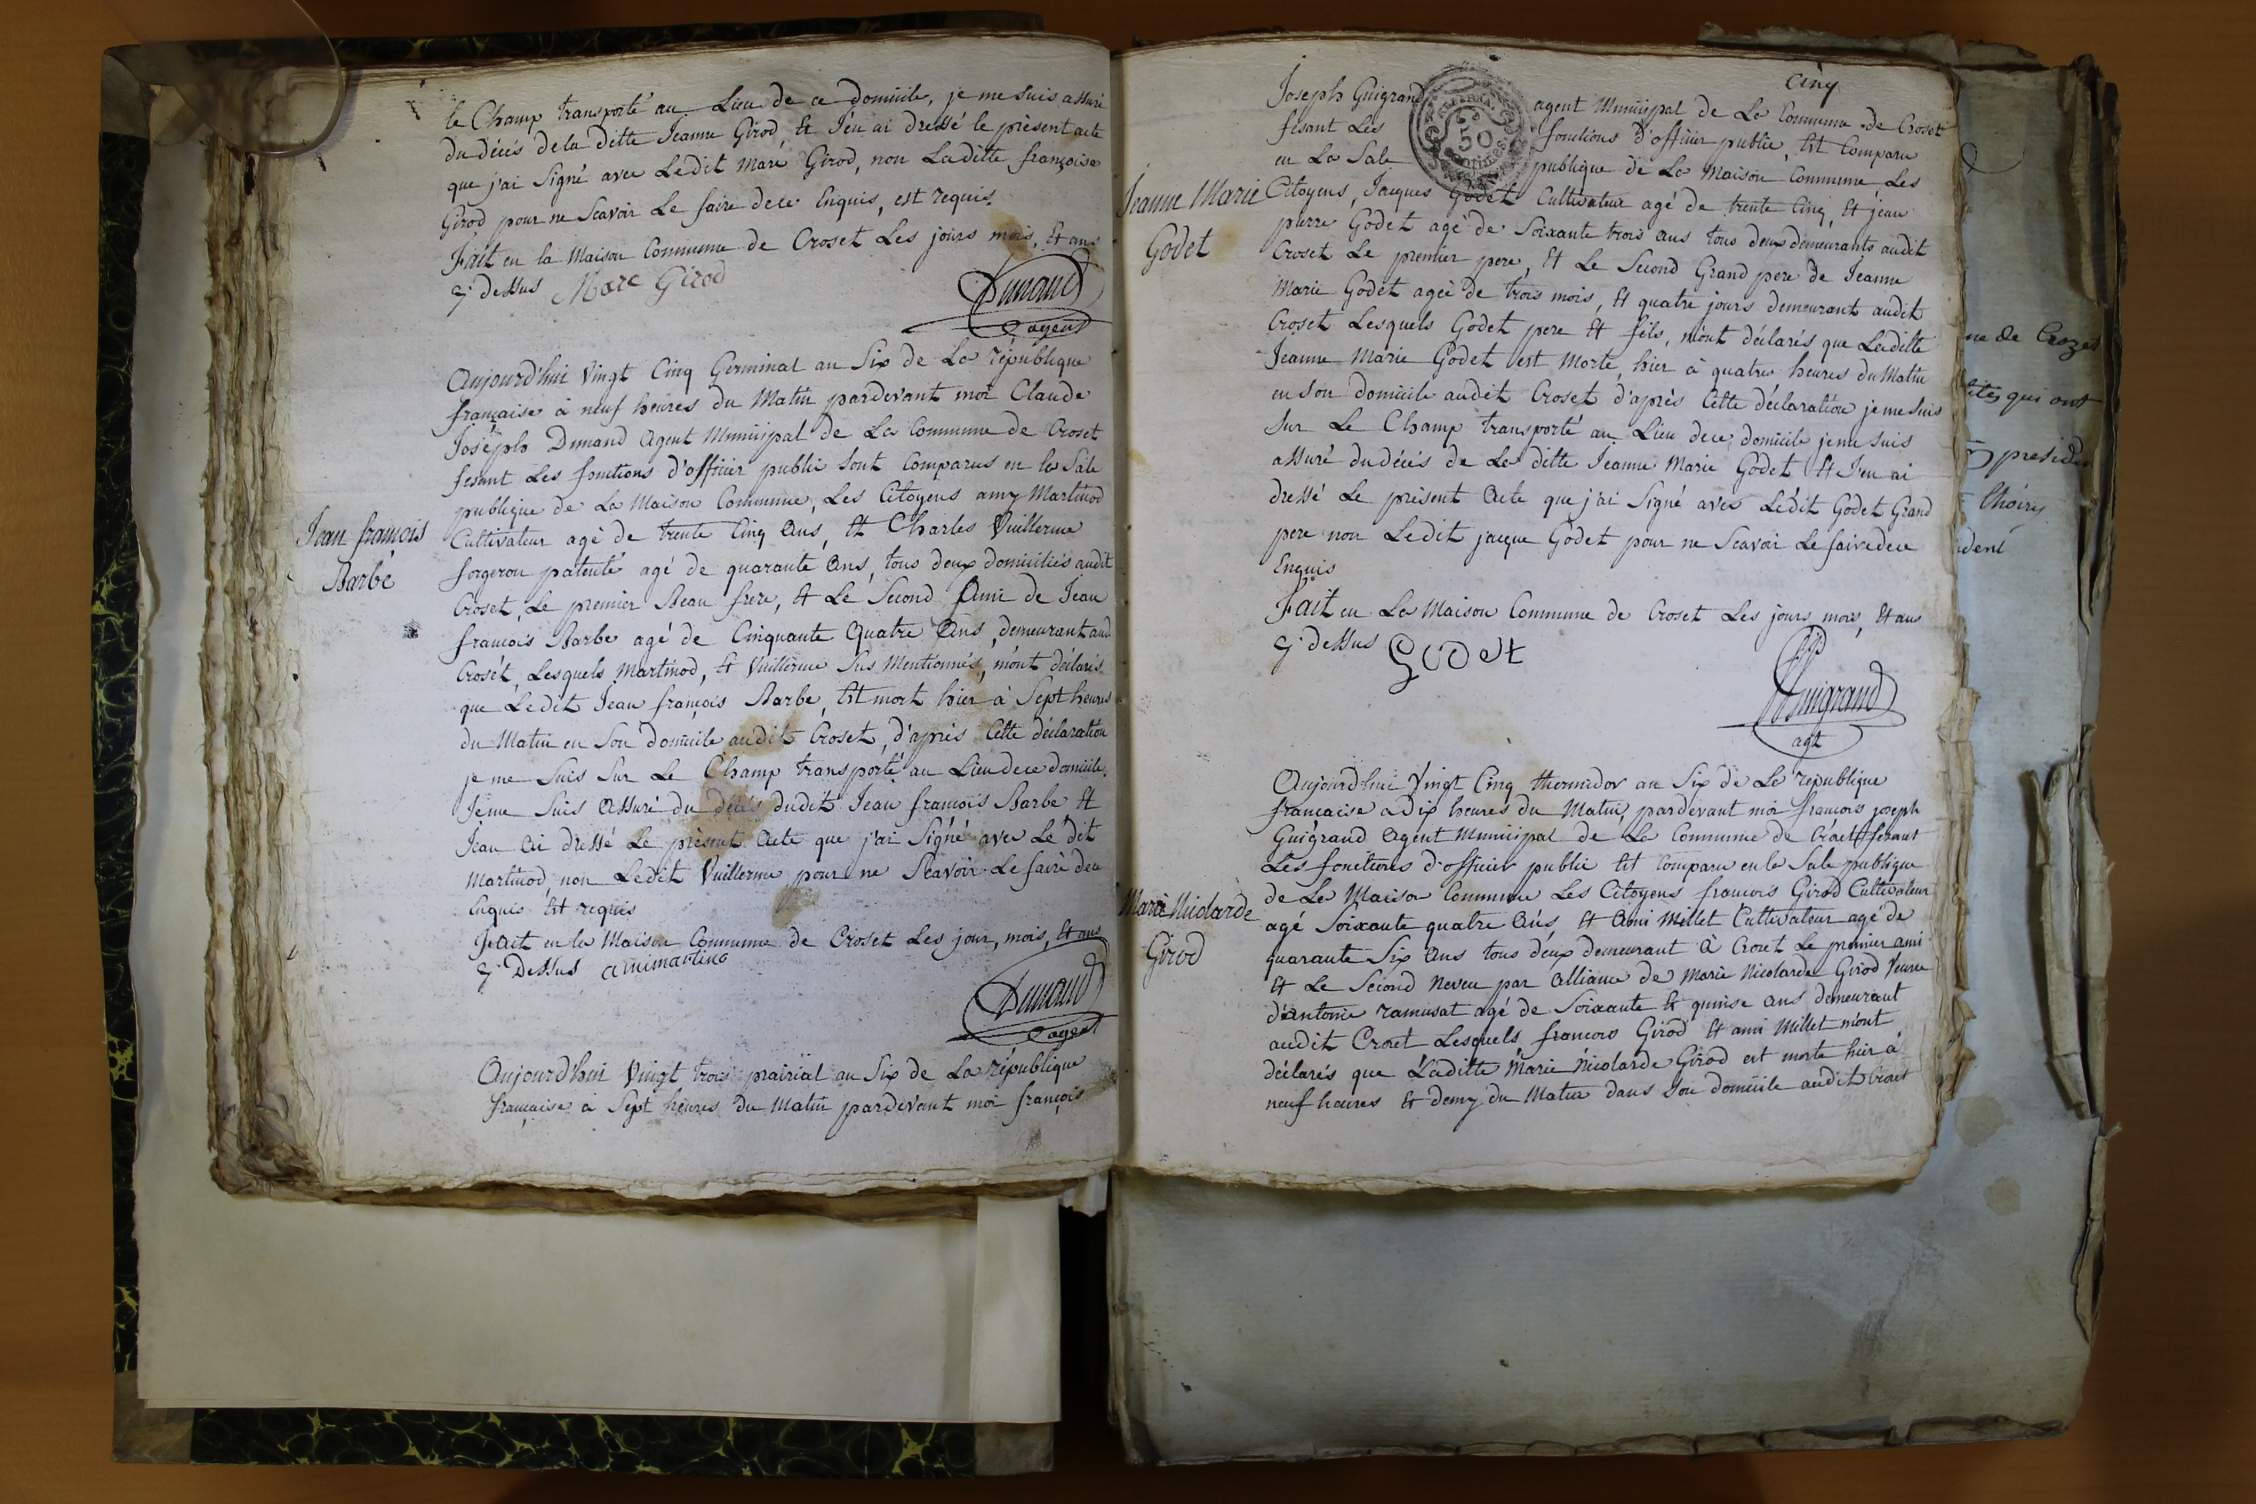 le Champ transporté au Lieu de ce domicile, je me suis assuré
du décés de la ditte Jeanne Girod, Et J'en ai dressé le présent acte
que j'ai Signé avec Ledit Marc Girod, non Laditte françoise
Girod pour ne Scavoir Le faire de ce Enquis, est requis.
Fait en la Maison Commune de Croset Les jours mois, Et ans
Cy dessus Marc Girod
Dunand
agent
Aujourd'hui Vingt Cinq Germinal an Six de La république
française à neuf heures du Matin pardevant moi Claude
Joseph Dunand Agent Municipal de La Commune de Croset
fesant Les fonctions d'officier public sont Comparus en la Sale
publique de La Maison Commune, Les Citoyens amy Martinod
Jean françois
Barbe
Cultivateur agé de trente Cinq Ans, Et Charles Vuillerme
forgeron patenté agé de quarante Ans, tous deux domiciliés audit
Croset, Le premier Beau frere, Et Le Second Ami de Jean
françois Barbe agé de Cinquante Quatre Ans, demeurant aud
Croset, Lesquels Martinod, Et Vuillerme Sus Mentionnés, m'ont déclarés
que Ledit Jean françois Barbe, Est mort hier à Sept heures
du Matin en Son domicile audit Croset, d'après Cette déclaration
je me Suis Sur Le Champ transporté au Lieu de ce domicile,
Jeme Suis Assuré du décés dudit Jean françois Barbe Et
Jean Ai dressé Le présent Acte que j'ai Signé avec Le dit
Martinod, non Ledit Vuillerme pour ne Scavoir Le faire dece
Enquis Et requis
Fait en la Maison Commune de Croset Les jour, mois, Et ans
Cy Dessus amimartino
Dunand
agent
Aujourd'hui Vingt trois prairial an Six de La république
française à Sept heures du Matin pardevant moi françois
Cinq
Joseph Guigrand agent Municipal de La Commune de Croset
fesant Les fonctions d'officier public, Est Comparu
50
en La Sale publique de La Maison Commune Les
Jeanne Marie
Godet
Citoyens, Jacques Godet Cultivateur agé de trente Cinq, Et jean
pierre Godet agé de Soixante trois ans tous deux demeurants audit
Croset Le premier pere, Et Le Second Grand pere de Jeanne
Marie Godet ageé de trois mois, Et quatre jours demeurant audit
Croset Lesquels Godet pere Et fils, m'ont déclarés que Laditte
Jeanne Marie Godet est Morte, hier à quatre heures du Matin
en son domicile audit Croset d'aprés Cette déclaration je me Suis
Sur Le Champ transporté au Lieu dece domicile jeme suis
assuré du décés de La ditte Jeanne Marie Godet Et J'en ai
dressé Le présent Acte que j'ai Signé avec Ledit Godet Grand
pere non Ledit jacque Godet pour ne Scavoir Le faire dece
Enquis
Fait en La Maison Commune de Croset Les jours mois, Et ans
Cy dessus Godet
Guigrand
agt
Aujourd'hui Vingt Cinq thermidor an Six de La république
française a Dix heures du Matin, pardevant moi françois joseph
Guigrand Agent Municipal de La Commune de Crozet fesant
Les fonctions d'officier public Est Comparu en la Sale publique
Marie Nicolarde
Girod
de La Maison Commune Les Citoyens françois Girod Cultivateur
agé Soixante quatre Ans, Et Ami Millet Cultivateur agé de
quarante Six Ans tous deux demeurant à Crozet Le premier ami
Et Le Second Neveu par Alliance de Marie Nicolarde Girod Veuve
d'antoine ramusat agé de Soixante Et quinse ans demeurant
audit Crozet Lesquels françois Girod Et ami Millet m'ont
déclarés que Laditte Marie Nicolarde Girod est morte hier à
neuf heures Et demy du Matin dans Son domicile audit Crozet
ne de Crozet
qui ont
presiden
Choisy
ident